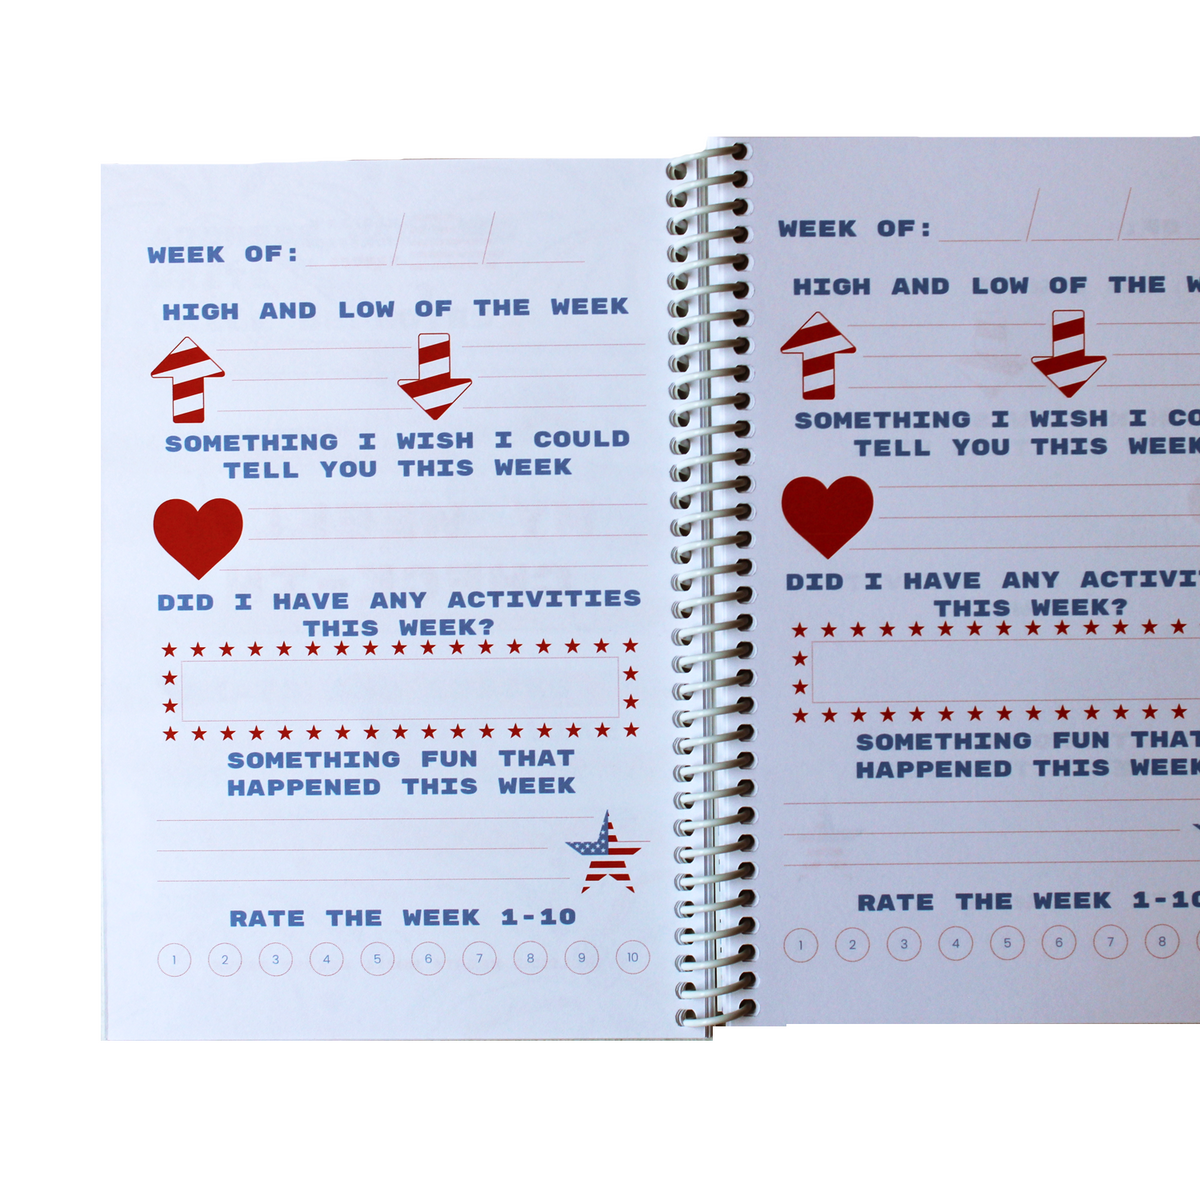 WEEK OF: / /
HIGH AND LOW OF THE WEEK
SOMETHING I WISH I COULD
TELL YOU THIS WEEK
DID I HAVE ANY ACTIVITIES
THIS WEEK?
SOMETHING FUN THAT
HAPPENED THIS WEEK
RATE THE WEEK 1-10
1 2 3 4 5 6 7 8 9 10
WEEK OF: / /
HIGH AND LOW OF THE
SOMETHING I WISH I
TELL YOU THIS WEEK
DID I HAVE ANY
THIS WEEK?
SOMETHING FUN THAT
HAPPENED THIS WEEK
RATE THE WEEK 1-10
1 2 3 4 5 6 7 8